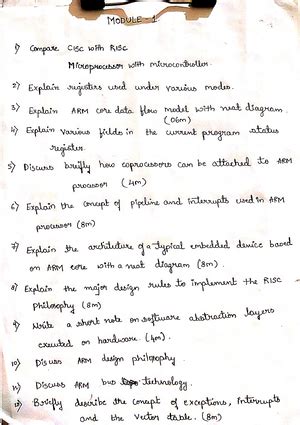 MODULE - 1
1) Compare CISC with RISC
Microprocessor with microcontroller.
2) Explain registers used under various modes.
3) Explain ARM core data flow model with neat diagram.
(06m)
4) Explain various fields in the current program status
register.
5) Discuss briefly how coprocessors can be attached to ARM
processor (4m)
6) Explain the concept of pipeline and interrupts used in ARM
processor (8m)
7) Explain the architecture of a typical embedded device based
on ARM core with a neat diagram (8m).
8) Explain the major design rules to implement the RISC
Philosophy (8m)
9) Write a short note on software abstraction layers
executed on hardware. (4m).
10) Discuss ARM design philosophy.
11) Discuss ARM bus technology.
12) Briefly describe the concept of exceptions, interrupts
and the vector table. (8m)